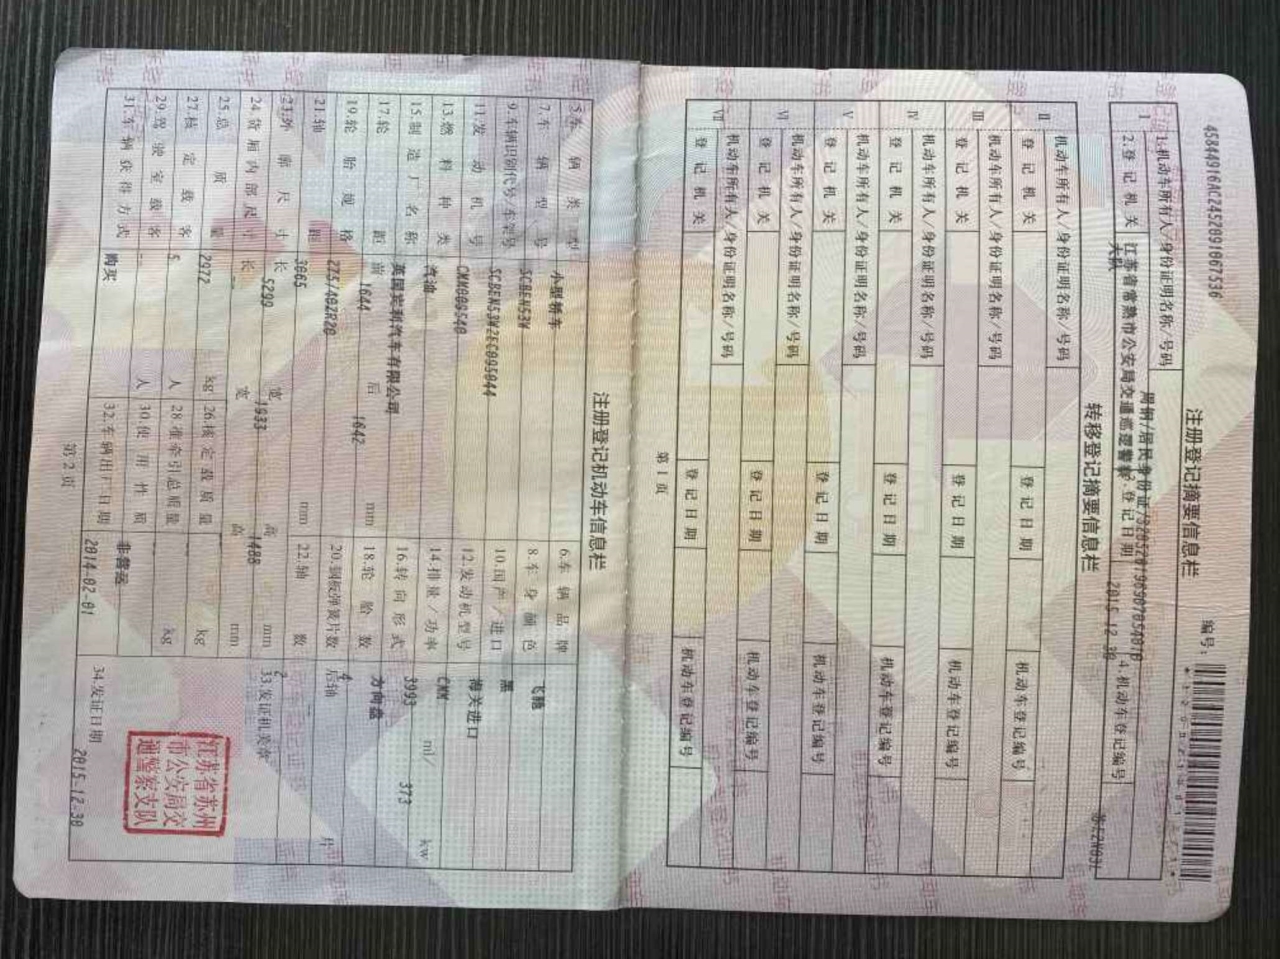 45844916AC2452091067536
注册登记摘要信息栏
编号:
I
1.机动车所有人/身份证明名称/号码
2.登记机关
江苏省常熟市公安局交通巡逻警察大队
3.登记日期
2015-12-30
4.机动车登记编号
转移登记摘要信息栏
II
机动车所有人/身份证明名称/号码
登记机关 登记日期 机动车登记编号
III
机动车所有人/身份证明名称/号码
登记机关 登记日期 机动车登记编号
IV
机动车所有人/身份证明名称/号码
登记机关 登记日期 机动车登记编号
V
机动车所有人/身份证明名称/号码
登记机关 登记日期 机动车登记编号
VI
机动车所有人/身份证明名称/号码
登记机关 登记日期 机动车登记编号
VII
机动车所有人/身份证明名称/号码
登记机关 登记日期 机动车登记编号
第1页
注册登记机动车信息栏
5.车辆类型 小型轿车 6.车辆品牌 飞驰
7.车辆型号 SCBEN53W 8.车身颜色 黑
9.车辆识别代号/车架号 10.国产/进口 海关进口
11.发动机号 12.发动机型号 CKM
13.燃料种类 汽油 14.排量/功率 3993 ml/ 373 kw
15.制造厂名称 英国宾利汽车有限公司 16.转向形式 方向盘
17.轮距 前 1644 后 1642 mm 18.轮胎数 4
19.轮胎规格 275/40ZR20 20.钢板弹簧片数 后轴 片
21.轴距 3065 mm 22.轴数 2
23.外廓尺寸 长 5299 宽 1933 高 1488 mm 33.发证机关章
24.货厢内部尺寸 长 -- 宽 高 mm
25.总质量 2972 kg 26.核定载质量 kg
27.核定载客 5 人 28.准牵引总质量 kg
29.驾驶室载客 -- 人 30.使用性质 非营运
31.车辆获得方式 购买 32.车辆出厂日期 2014-02-01 34.发证日期 2015-12-30
江苏省苏州
市公安局交
通警察支队
第2页